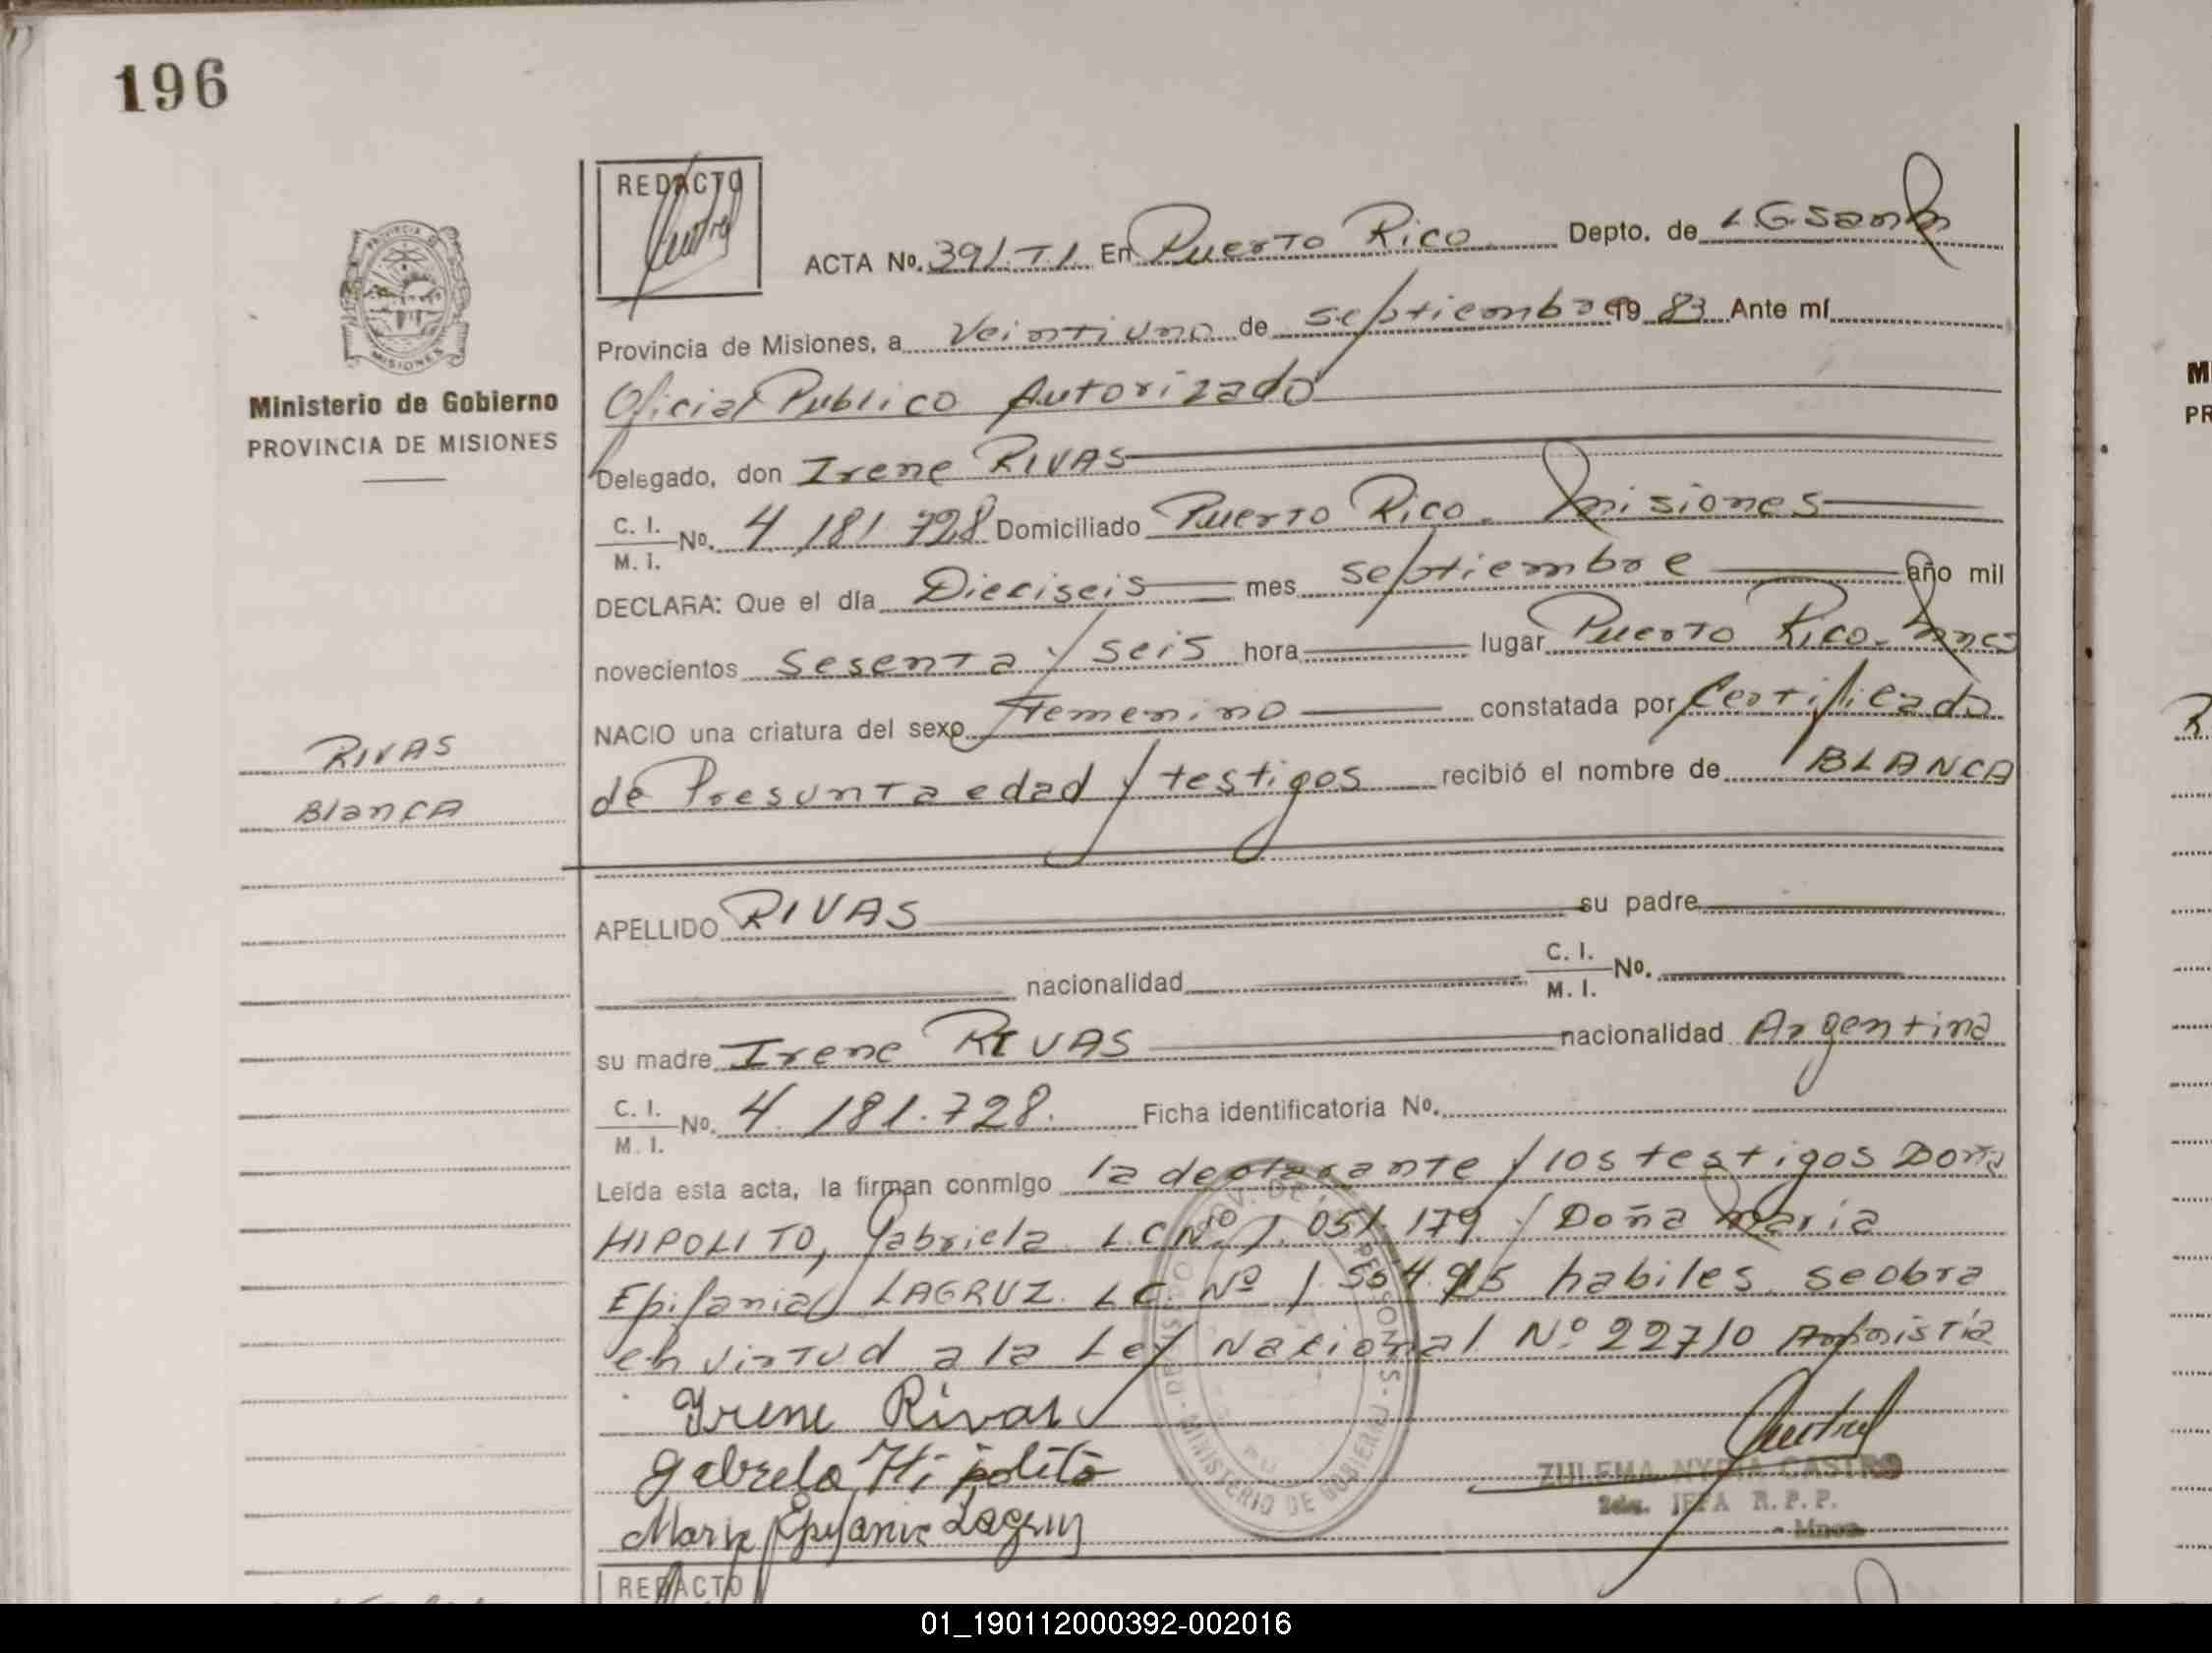 196
REDACTO
ACTA No. 391.T.I. En Puerto Rico. Depto. de L.G.San M
Provincia de Misiones, a Veintiuno de septiembre 19 83 Ante mí
Oficial Publico Autorizado
Ministerio de Gobierno
PROVINCIA DE MISIONES
Delegado, don Irene RIVAS
C. I. / M. I. No. 4 181 728 Domiciliado Puerto Rico. Misiones
DECLARA: Que el día Dieciseis mes septiembre año mil
novecientos sesenta y seis hora lugar Puerto Rico. Mnes
NACIO una criatura del sexo Femenino constatada por Certificado
de Presunta edad y testigos recibió el nombre de BLANCA
RIVAS
Blanca
APELLIDO RIVAS su padre
nacionalidad C. I. / M. I. No.
su madre Irene RIVAS nacionalidad Argentina
C. I. / M. I. No. 4.181.728. Ficha identificatoria No.
Leída esta acta, la firman conmigo la declarante y los testigos Doña
HIPOLITO, Gabriela L.C.Nº 1.051.179 y Doña Maria
Epifania LAGRUZ. L.C. Nº habiles. se obra
en virtud a la Ley Nacional Nº 22710 Amnistia
Irene Rivas
Gabriela Hipolito
Maria Epifania Lagruz
ZULEMA NYDIA CASTRO
2da. JEFA R.P.P.
- Mnes
REDACTO
01_190112000392-002016